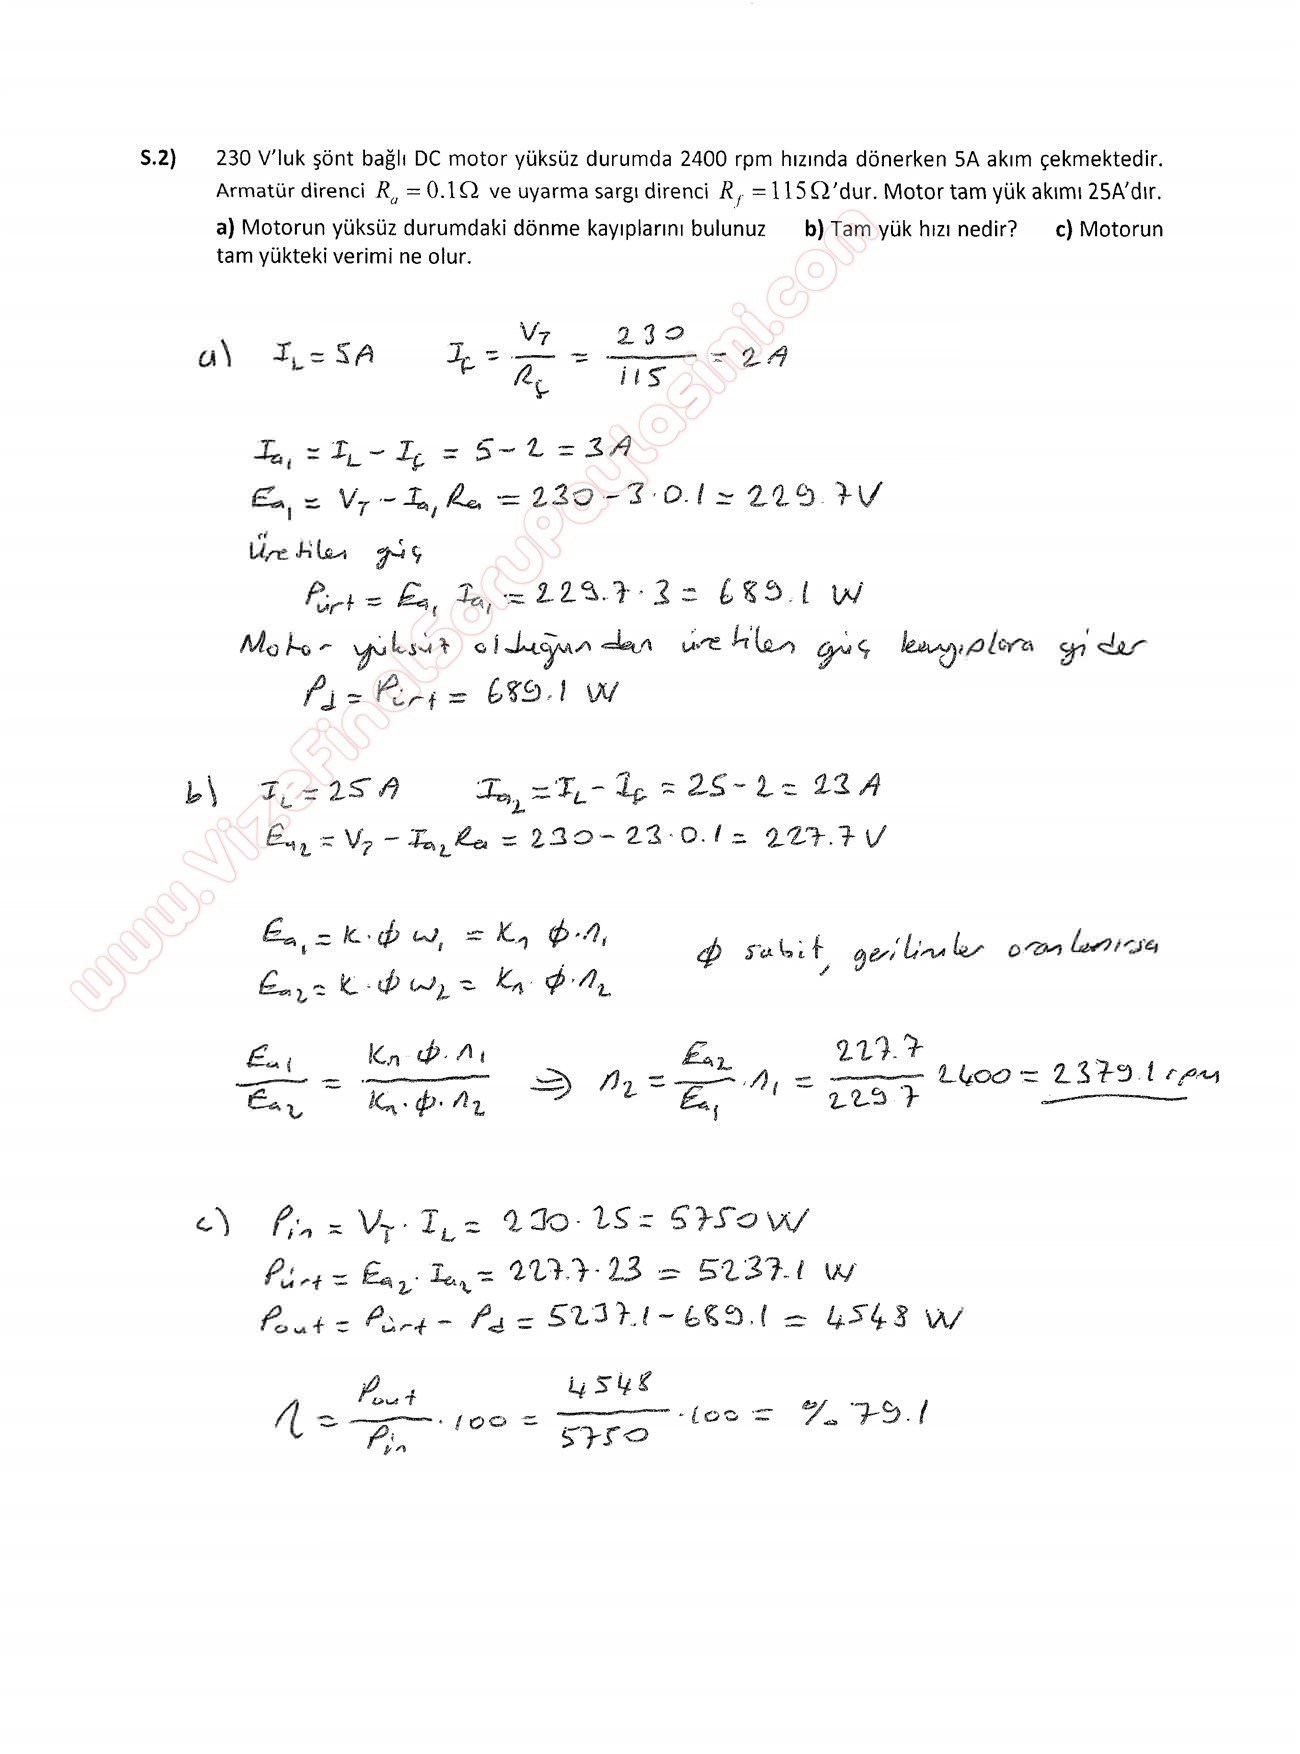 S.2) 230 V'luk şönt bağlı DC motor yüksüz durumda 2400 rpm hızında dönerken 5A akım çekmektedir.
Armatür direnci R_a = 0.1Ω ve uyarma sargı direnci R_f = 115Ω'dur. Motor tam yük akımı 25A'dır.
a) Motorun yüksüz durumdaki dönme kayıplarını bulunuz b) Tam yük hızı nedir? c) Motorun
tam yükteki verimi ne olur.
a) I_L = 5A I_ç = V_T / R_ç = 230 / 115 = 2A
I_a1 = I_L - I_ç = 5 - 2 = 3A
E_a1 = V_T - I_a1 R_a = 230 - 3 · 0.1 = 229.7V
Üretilen güç
P_ürt = E_a1 I_a1 = 229.7 · 3 = 689.1 W
Motor yüksüz olduğundan üretilen güç kayıplara gider
P_d = P_ürt = 689.1 W
b) I_L = 25A I_a2 = I_L - I_ç = 25 - 2 = 23A
E_a2 = V_T - I_a2 R_a = 230 - 23 · 0.1 = 227.7V
E_a1 = K · ϕ ω_1 = K_n ϕ · n_1
ϕ sabit, gerilimler oranlanırsa
E_a2 = K · ϕ ω_2 = K_n · ϕ · n_2
E_a1 / E_a2 = K_n ϕ · n_1 / K_n · ϕ · n_2 ⇒ n_2 = E_a2 / E_a1 · n_1 = 227.7 / 229.7 2400 = 2379.1 rpm
c) P_in = V_T · I_L = 230 · 25 = 5750W
P_ürt = E_a2 · I_a2 = 227.7 · 23 = 5237.1 W
P_out = P_ürt - P_d = 5237.1 - 689.1 = 4548 W
η = P_out / P_in · 100 = 4548 / 5750 · 100 = % 79.1
www.VizeFinalSoruPaylasimi.com